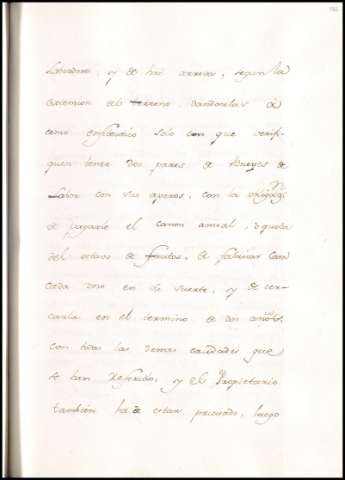 Labradores, y de hai arriva, segun la
extension del terreno, dandoselas à
censo enfiteutico solo con que verifi-
quen tener dos pares de Bueyes de
Labor con sus aperos, con la obligaz.on
de pagarle el canon anual, ò quota
del octavo de frutos, de fabricar Casa
cada uno en su suerte, y de cer-
carla en el termino de dos años,
con todas las demas calidades que
se han referido; y el Propietario
tambien ha de estar precisado, luego